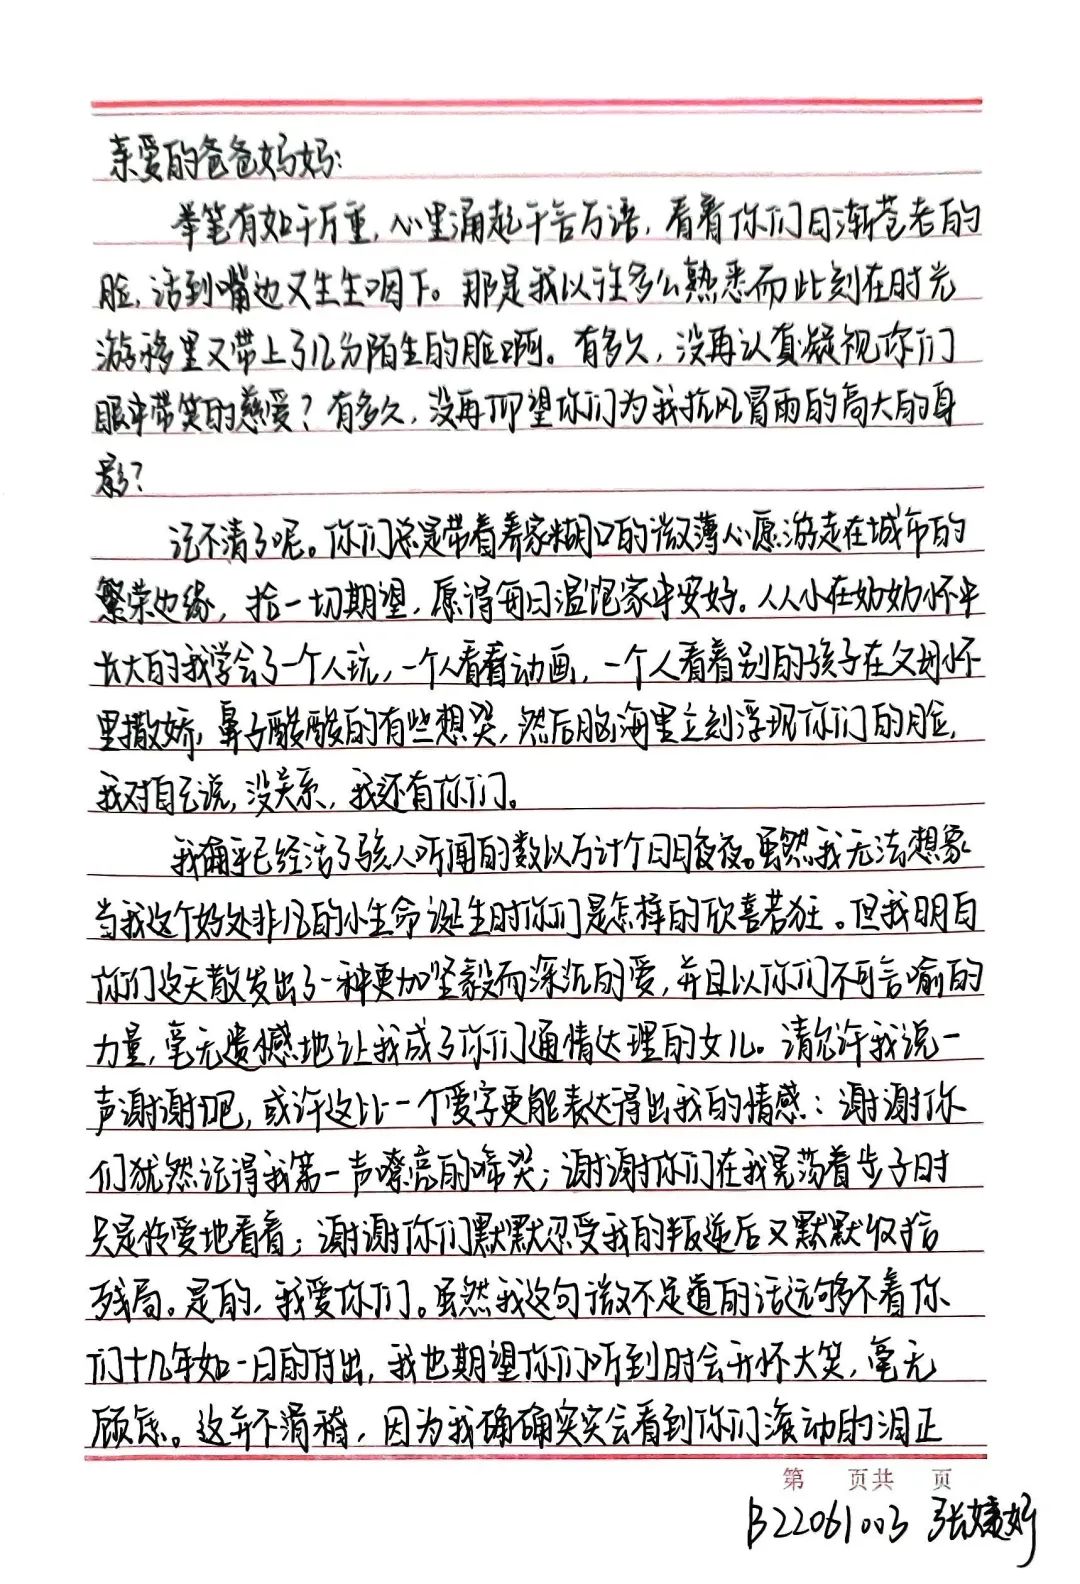 亲爱的爸爸妈妈:
举笔有如千万重,心里涌起千言万语,看着你们日渐苍老的
脸,话到嘴边又生生咽下。那是我以往多么熟悉而此刻在时光
游移里又带上了几分陌生的脸啊。有多久,没再认真凝视你们
眼中带笑的慈爱?有多久,没再仰望你们为我抗风冒雨的高大的身
影?
记不清了呢。你们总是带着养家糊口的微薄心愿游走在城市的
繁荣边缘,拾一切期望,愿得每日温饱家中安好。从小在奶奶怀中
长大的我学会了一个人玩,一个人看着动画,一个人看着别的孩子在父母怀
里撒娇,鼻子酸酸的有些想哭,然后脑海里立刻浮现你们的脸,
我对自己说,没关系,我还有你们。
我确乎已经活了骇人听闻的数以万计个日日夜夜。虽然我无法想象
当我这个好处非凡的小生命诞生时你们是怎样的欣喜若狂。但我明白
你们这天散发出了一种更加坚毅而深沉的爱,并且以你们不可言喻的
力量,毫无遗憾地让我成了你们通情达理的女儿。请允许我说一
声谢谢吧,或许这比一个爱字更能表达得出我的情感:谢谢你
们犹然记得我第一声嘹亮的啼哭;谢谢你们在我晃荡着步子时
只是怜爱地看着;谢谢你们默默忍受我的叛逆后又默默收拾
残局。是的,我爱你们。虽然我这句微不足道的话远够不着你
们十几年如一日的付出,我也期望你们听到时会开怀大笑,毫无
顾虑。这并不滑稽,因为我确确实实会看到你们滚动的泪正
第 页共 页
B22061003 张妤